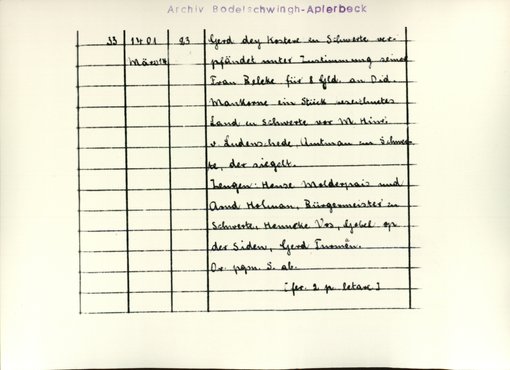 Archiv Bodelschwingh-Aplerbeck
33 1401 83 Gerd dey Kostere in Schwerte ver-
März 14 pfändet unter Zustimmung seiner
Frau Beleke für 8 Gld. an Did.
Mankorne ein Stück
Land in Schwerte vor M. Hinri
v. Ludenschede, Amtman in Schwer-
te, der siegelt.
Zeugen: Hense und
Arnd Holman, Bürgermeister in
Schwerte, Henneke Vos, Gobel op
der Siden, Gerd
Or. pgm. S. ab.
[fer. 2 p. letare]